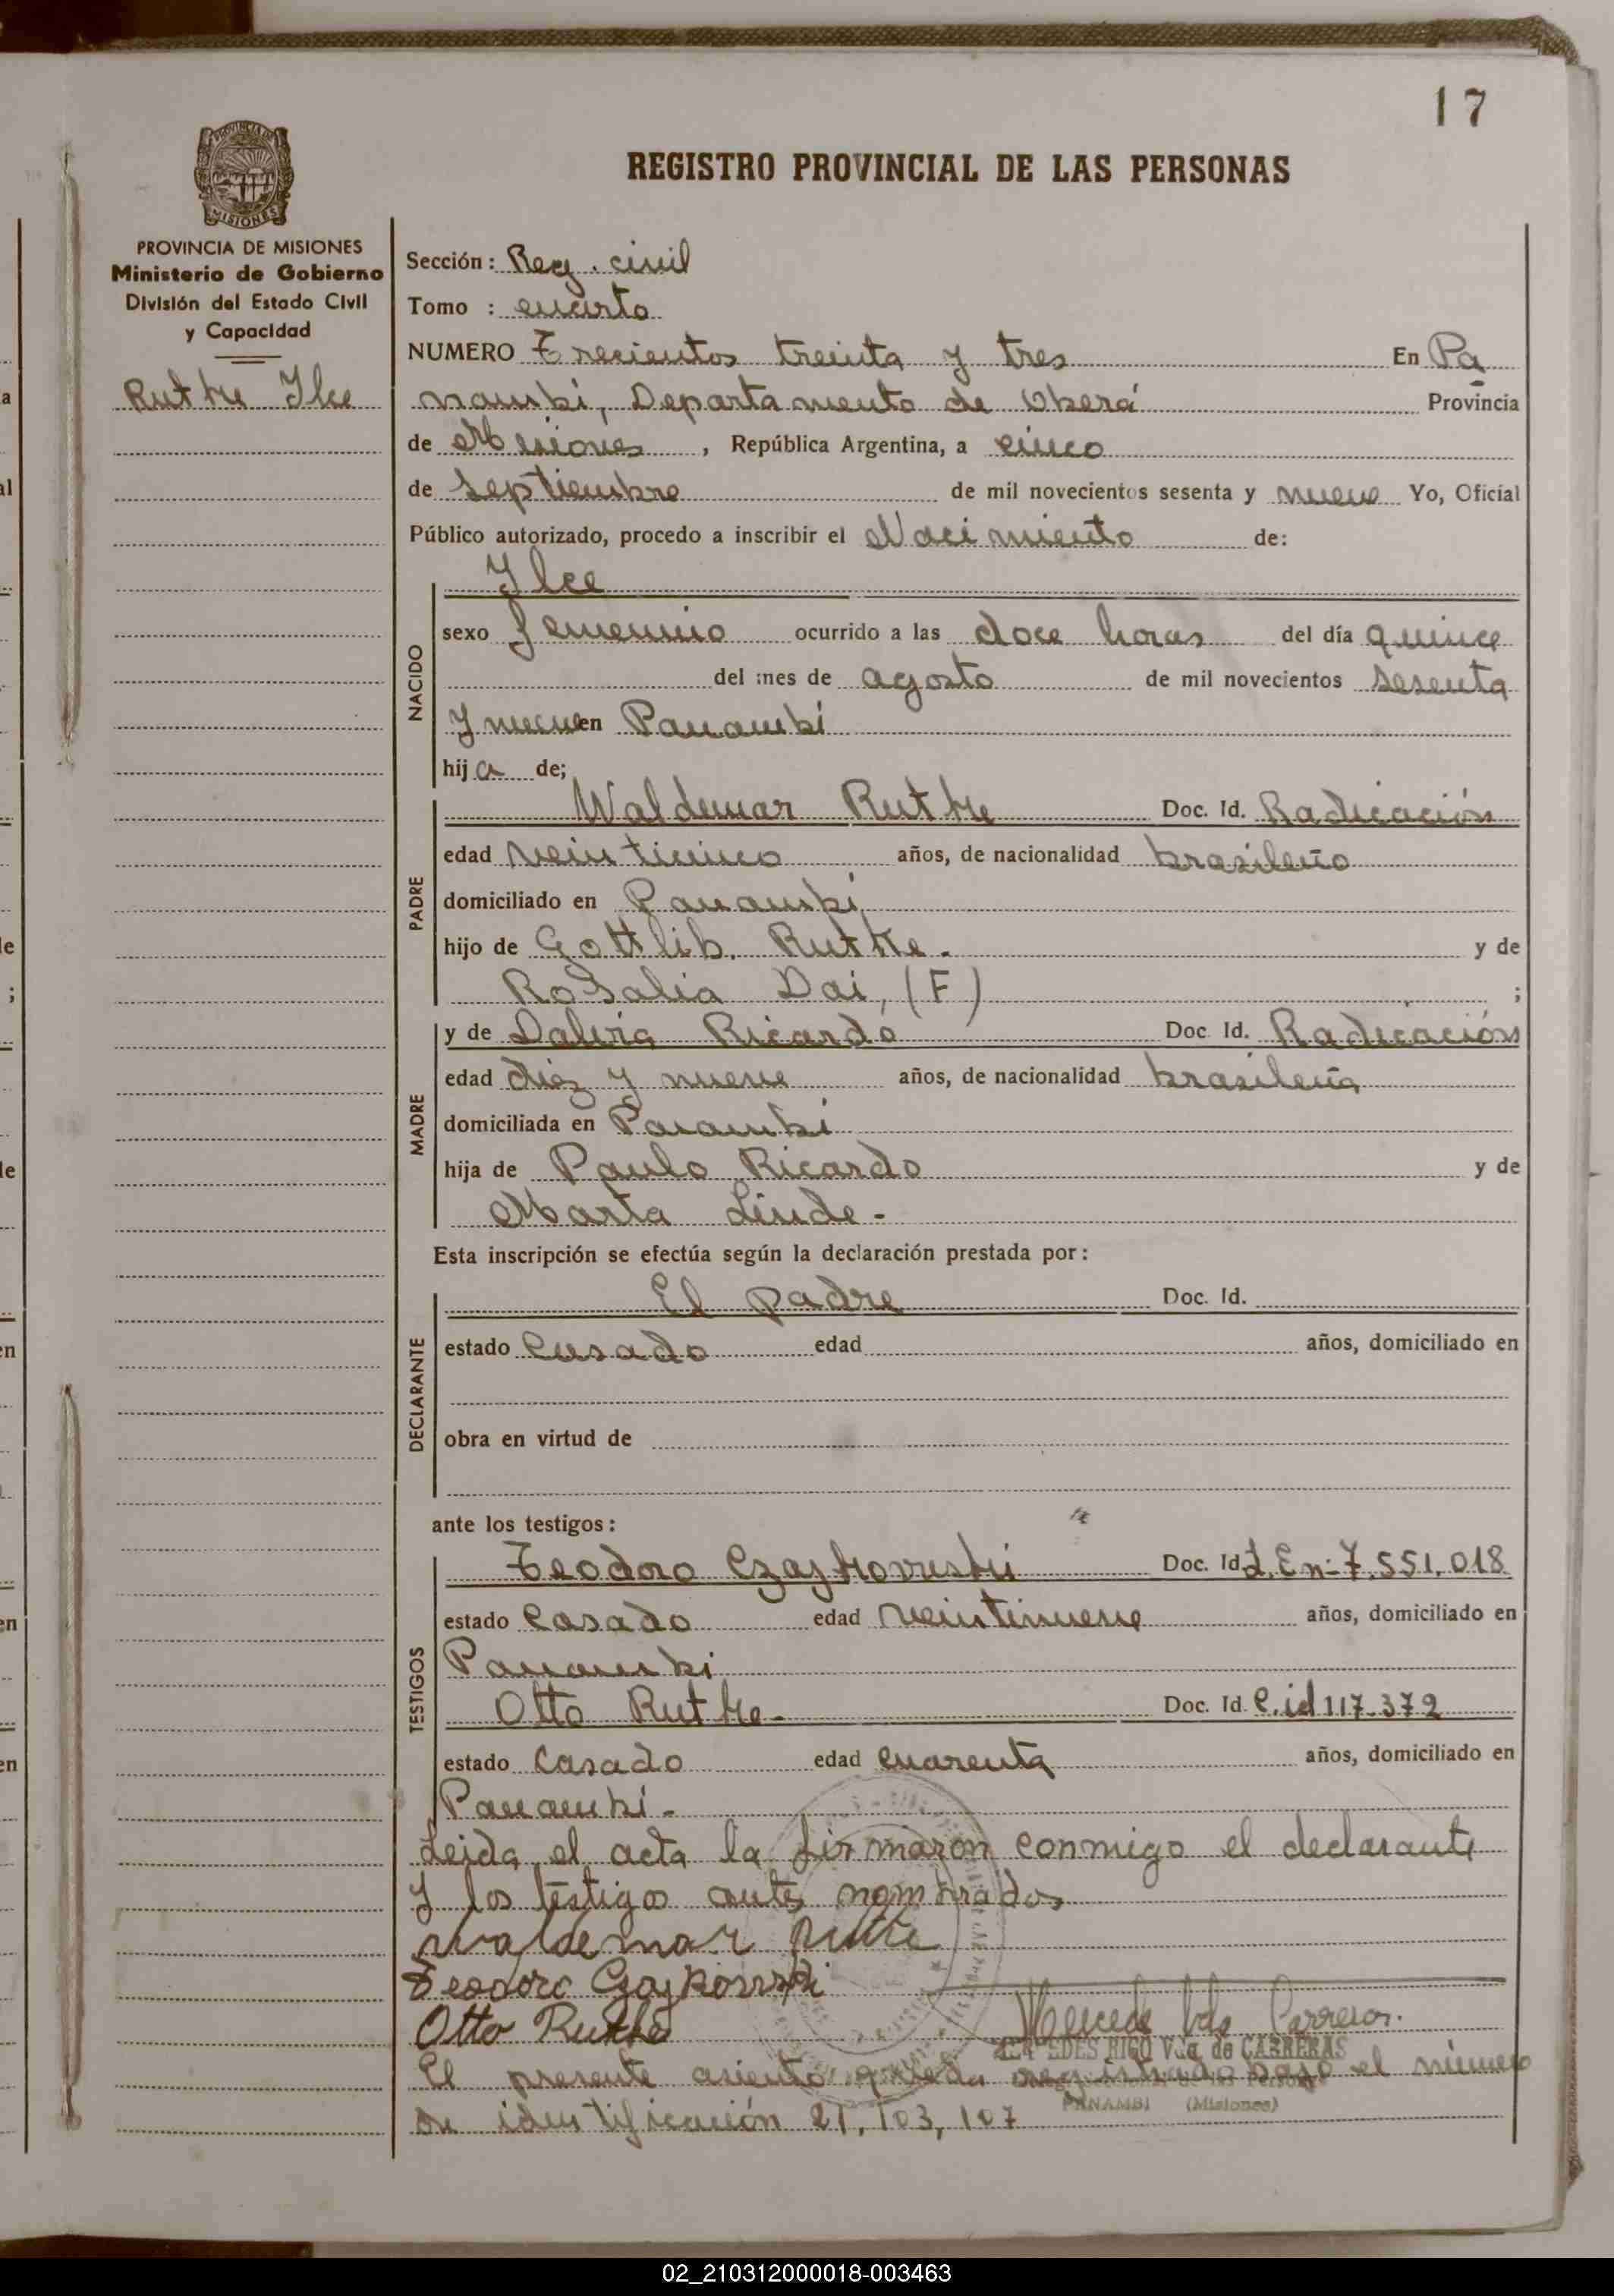 17
REGISTRO PROVINCIAL DE LAS PERSONAS
PROVINCIA DE MISIONES
MISIONES
PROVINCIA DE MISIONES
Ministerio de Gobierno
División del Estado Civil
y Capacidad
Ruthe Ilce
Sección: Reg. civil
Tomo : cuarto
NUMERO Trecientos treinta y tres En Pa
nambí, Departamento de Oberá Provincia
de Misiones, República Argentina, a cinco
de Septiembre de mil novecientos sesenta y nueve Yo, Oficial
Público autorizado, procedo a inscribir el Nacimiento de:
NACIDO
Ilce
sexo femenino ocurrido a las doce horas del día quince
del mes de agosto de mil novecientos sesenta
y nueve en Panambí
hija de;
PADRE
Waldemar Ruthe Doc. Id. Radicación
edad veinticinco años, de nacionalidad brasileño
domiciliado en Panambí
hijo de Gottlib. Ruthe. y de
Rosalia Dai, (F) ;
MADRE
y de Daliria Ricardo Doc. Id. Radicación
edad diez y nueve años, de nacionalidad brasileña
domiciliada en Panambí
hija de Paulo Ricardo y de
Marta Linde-
Esta inscripción se efectúa según la declaración prestada por:
DECLARANTE
El padre Doc. Id.
estado Casado edad años, domiciliado en
obra en virtud de
ante los testigos:
TESTIGOS
Teodoro Czajkowski Doc. Id L.En-7.551.018
estado Casado edad veintinueve años, domiciliado en
Panambi
Otto Ruthe- Doc. Id. C.id 117-372
estado Casado edad cuarenta años, domiciliado en
Panambí-
Leida el acta la firmaron conmigo el declarante
y los testigos antes nombrados
Waldemar Ruthe
Teodoro Czajkowski
Otto Ruthe
Mercede Vda Carreras.
MERCEDES RIGO Vda. de CARRERAS
El presente asiento queda registrado bajo el número
PANAMBI (Misiones)
de identificación 21,103,107
02_210312000018-003463